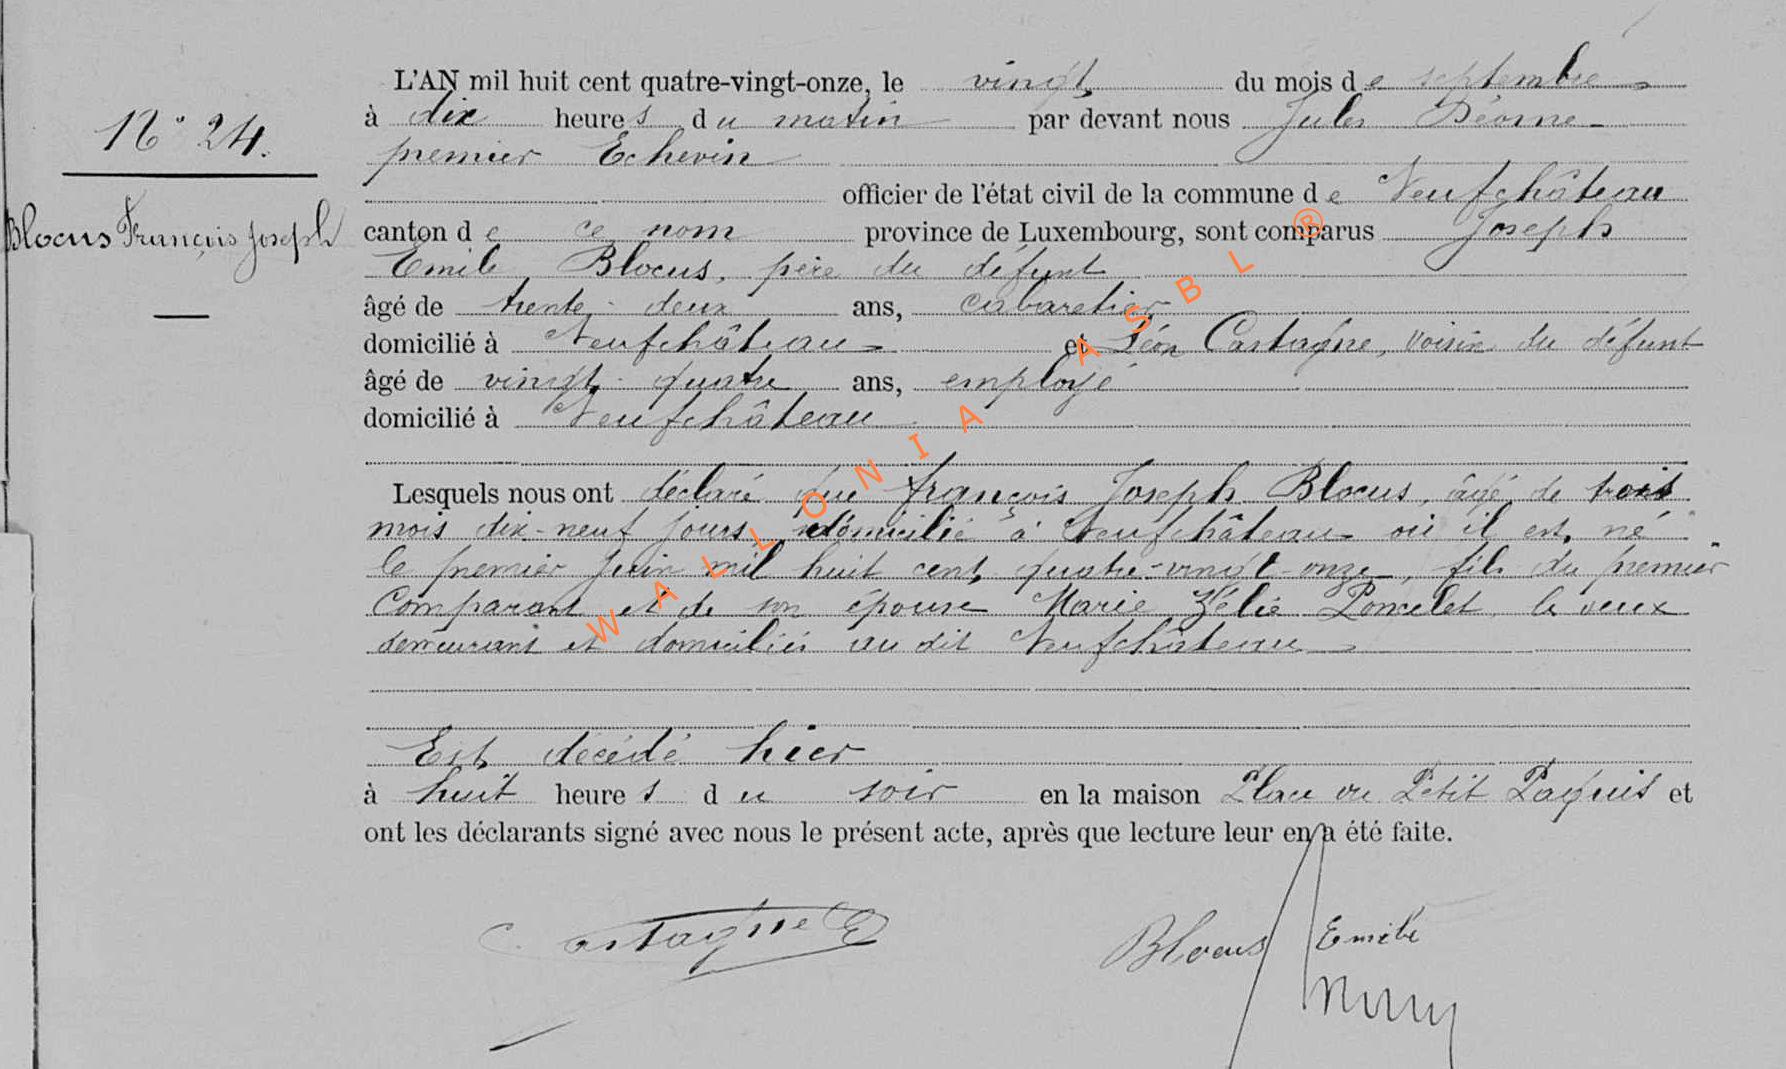 N° 24.
Blocus François Joseph
L'AN mil huit cent quatre-vingt-onze, le vingt du mois de septembre
à dix heures du matin par devant nous Jules Déome
premier Echevin
officier de l'état civil de la commune de Neufchâteau
canton de ce nom province de Luxembourg, sont comparus Joseph
Emile Blocus, père du défunt
âgé de trente-deux ans, cabaretier
domicilié à Neufchâteau et Léon Castagne, voisin du défunt
âgé de vingt-quatre ans, employé
domicilié à Neufchâteau
Lesquels nous ont déclaré que françois Joseph Blocus, âgé de trois
mois dix-neuf jours, domicilié à Neufchâteau où il est né
le premier Juin mil huit cent quatre-vingt-onze, fils du premier
Comparant et de son épouse Marie Zélie Poncelet,
demeurant et domiciliés au dit Neufchâteau
Est décédé hier
à huit heures du soir en la maison Place du Petit Paquis et
ont les déclarants signé avec nous le présent acte, après que lecture leur en a été faite.
Castagne
Blocus Emile
WALLONIA ASBL ®